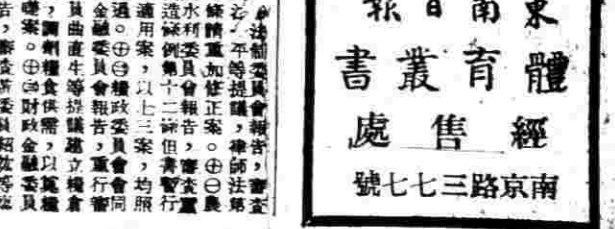 東南日報
體育叢書
經售處
南京路三七七號
法制委員會報告,審查
平等提議,律師法第
條請重加修正案。㊉㊀農
水利委員會報告,審查
造條例第十二條但書暫行
適用案,以上三案,均照
過。㊉㊁糧政委員會會同
金融委員會報告,重行審
員曲直生等提議建立糧倉
,調劑糧食供需,以奠糧
礎案。㊉㊂財政金融委員
告,審查委員